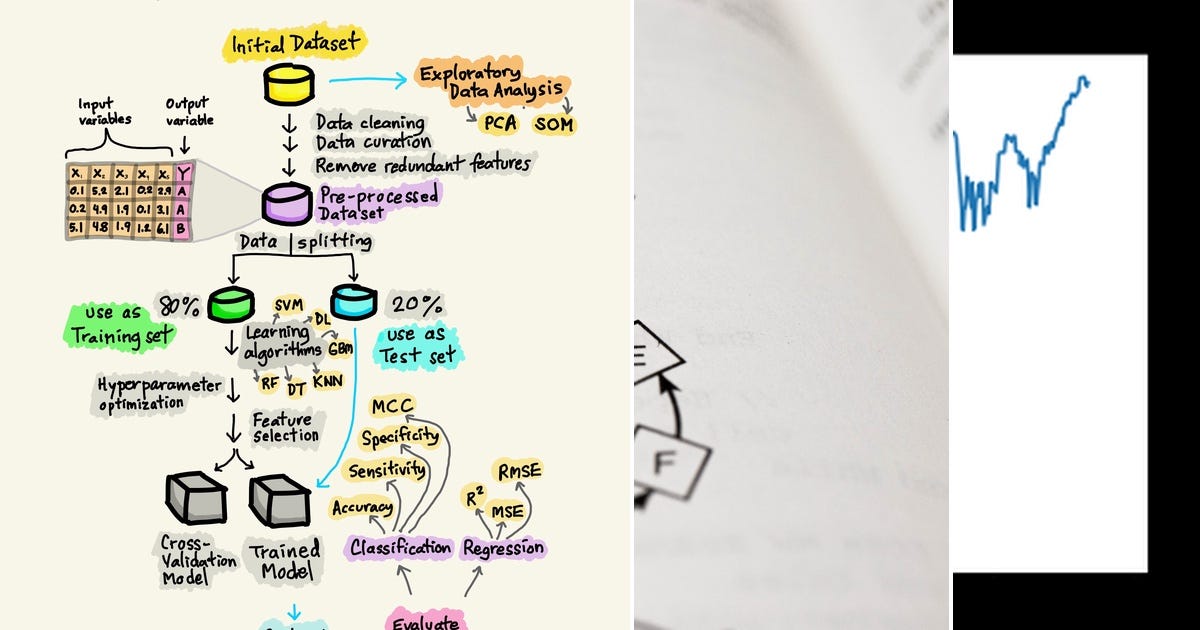 Initial Dataset
Exploratory
Data Analysis
PCA SOM
Input
variables
Output
variable
Data cleaning
Data curation
Remove redundant features
X₁ X₂ X₃ X₄ X₅ Y
0.1 5.2 2.1 0.2 2.9 A
0.2 4.9 1.9 0.1 3.1 A
5.1 4.8 1.9 1.2 6.1 B
Pre-processed
Dataset
Data splitting
80%
20%
use as
Training set
SVM
DL
Learning
algorithms
GBM
RF
DT
KNN
use as
Test set
Hyperparameter
optimization
Feature
selection
MCC
Specificity
Sensitivity
Accuracy
RMSE
R²
MSE
Classification
Regression
Cross-
Validation
Model
Trained
Model
Evaluate
E
F